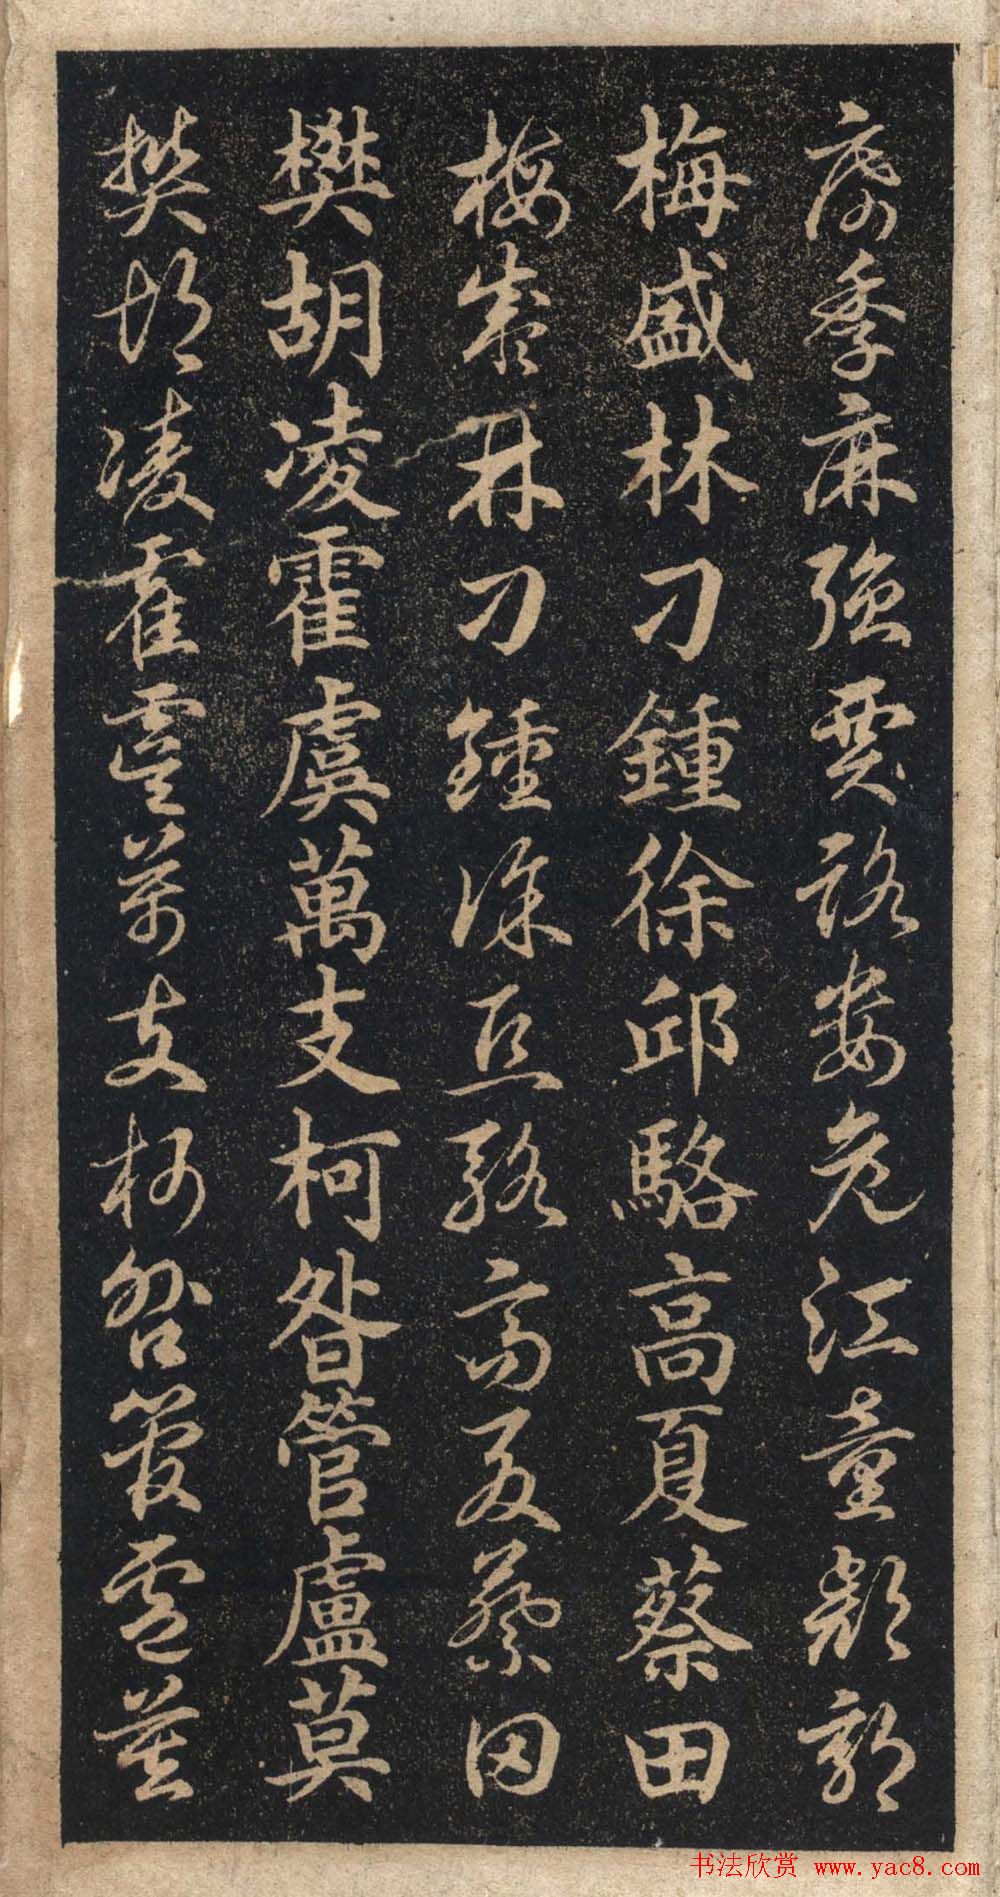 席季麻強賈路婁危江童顏郭
梅盛林刁鍾徐邱駱高夏蔡田
梅盛林刁鍾徐丘駱高夏蔡田
樊胡凌霍虞萬支柯昝管盧莫
樊胡凌霍虞萬支柯昝管盧莫
书法欣赏 www.yac8.com